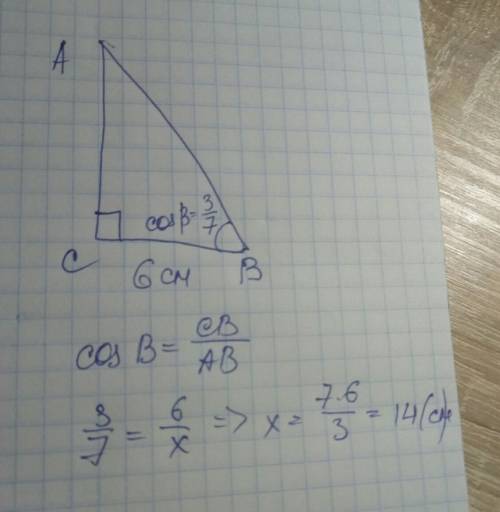 A
cos B = 3/7
C
6 см
B
cos B = CB/AB
3/7 = 6/x => x = 7·6/3 = 14 (см